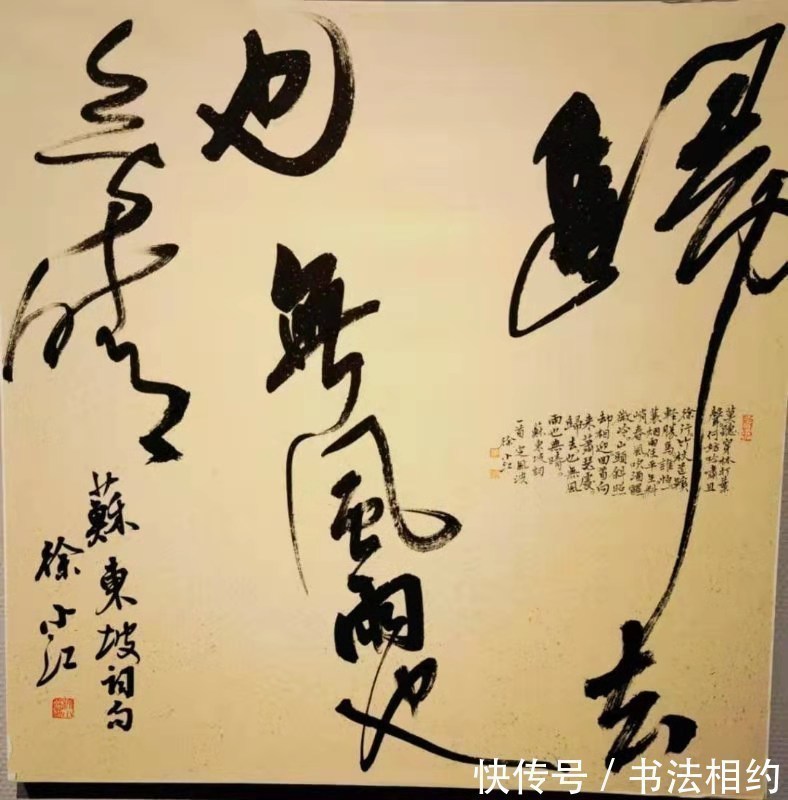 歸去
也無風雨也
無晴
蘇東坡詞句
徐小江
莫聽穿林打葉
聲何妨吟嘯且
徐行竹杖芒鞋
輕勝馬誰怕一
蓑烟雨任平生料
峭春風吹酒醒
微冷山頭斜照
却相迎回首向
来蕭瑟處
歸去也無風
雨也無晴
蘇東坡詞
一首定風波
徐小江
快传号 / 书法相约